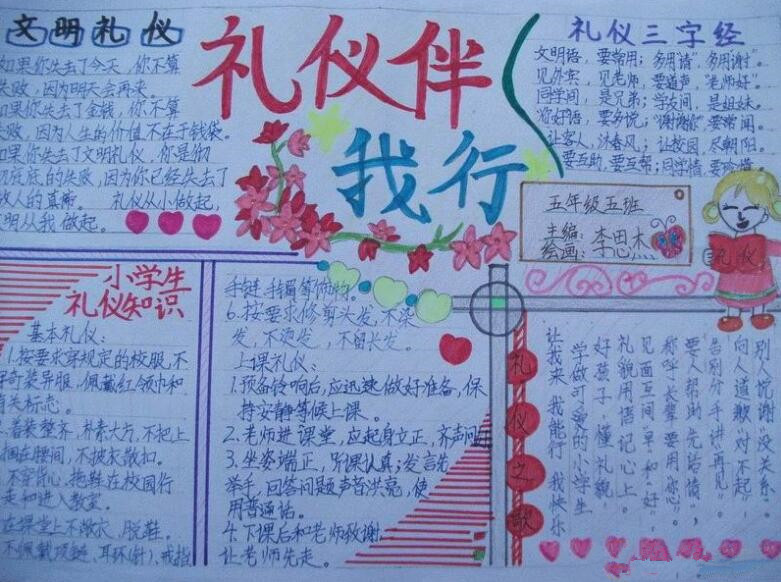 文明礼仪
如果你失去了今天，你不算
失败，因为明天会再来。
如果你失去了金钱，你不算
失败，因为人生的价值不在于钱袋。
如果你失去了文明礼仪，你是彻
彻底底的失败，因为你已经失去了
做人的真谛。 礼仪从小做起，
文明从我做起。
礼仪伴
我行
礼仪三字经
文明语，要常用；多用"请"，多用"谢"。
见外宾，见老师，要道声，"老师好"。
同学间，是兄弟；学友间，是姐妹。
让客人，沐春风；让校园，尽朝阳。
要互助，要互帮；同学情，要珍惜。
五年级五班
主编：
绘画：李思木
礼仪
小学生
礼仪知识
基本礼仪：
1.按要求穿规定的校服，不
穿奇装异服，佩戴红领巾和
有关标志。
2.着装整齐，朴素大方，不把上
捆在腰间，不披衣散扣。
不穿背心，拖鞋在校园行
走和进入教室。
在课堂上不敞衣，脱鞋。
不佩戴项链、耳环(针)、戒指
手链
6.按要求修剪头发，不染
发，不烫发，不留长发。
上课礼仪：
1.预备铃响后，应迅速做好准备，保
持安静等候上课。
2.老师进课堂，应起身立正，齐声问
3.坐姿端正，听课认真；发言先
举手，回答问题声音洪亮，使
用普通话。
4.下课后和老师致谢，
让老师先走。
礼仪之歌
别人悦谢"没关系"，
向人道歉"对不起"，
告别分手讲"再见"，
要人帮助先话"请"，
称呼长辈要用"您"，
见面互问"早"和"好"，
礼貌用语记心上。
好孩子，懂礼貌，
学做可爱的小学生
让我来 我能行 我快乐